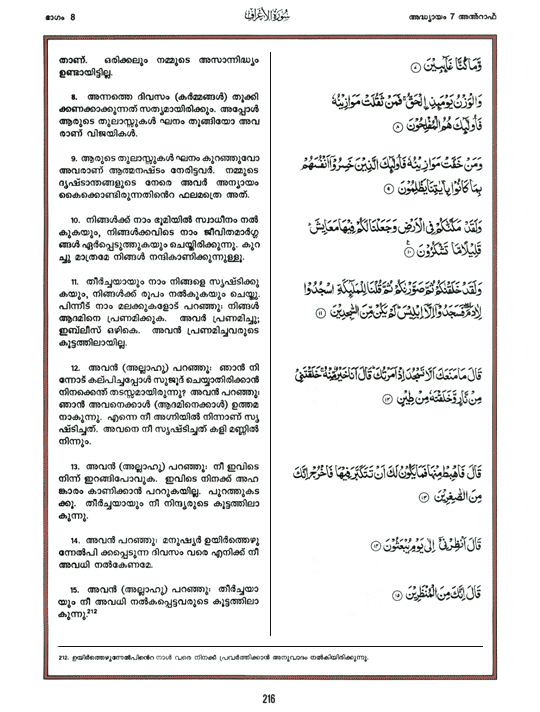 ഭാഗം 8
سُورَةُ الْأَعْرَافِ
അദ്ധ്യായം 7 അൽറാഫ്
താണ്. ഒരിക്കലും നമ്മുടെ അസാന്നിദ്ധ്യം
ഉണ്ടായിട്ടില്ല.
8. അന്നത്തെ ദിവസം (കർമ്മങ്ങൾ) തൂക്കി
ക്കണക്കാക്കുന്നത് സത്യമായിരിക്കും. അപ്പോൾ
ആരുടെ തുലാസ്സുകൾ ഘനം തൂങ്ങിയോ അവ
രാണ് വിജയികൾ.
9. ആരുടെ തുലാസ്സുകൾ ഘനം കുറഞ്ഞുവോ
അവരാണ് ആത്മനഷ്ടം നേരിട്ടവർ. നമ്മുടെ
ദൃഷ്ടാന്തങ്ങളുടെ നേരെ അവർ അന്യായം
കൈക്കൊണ്ടിരുന്നതിൻെറ ഫലമത്രെ അത്.
10. നിങ്ങൾക്ക് നാം ഭൂമിയിൽ സ്വാധീനം നൽ
കുകയും, നിങ്ങൾക്കവിടെ നാം ജീവിതമാർഗ്ഗ
ങ്ങൾ ഏർപ്പെടുത്തുകയും ചെയ്തിരിക്കുന്നു. കുറ
ച്ചു മാത്രമേ നിങ്ങൾ നന്ദികാണിക്കുന്നുള്ളൂ.
11. തീർച്ചയായും നാം നിങ്ങളെ സൃഷ്ടിക്കു
കയും, നിങ്ങൾക്ക് രൂപം നൽകുകയും ചെയ്തു.
പിന്നീട് നാം മലക്കുകളോട് പറഞ്ഞു: നിങ്ങൾ
ആദമിനെ പ്രണമിക്കുക. അവർ പ്രണമിച്ചു;
ഇബ്ലീസ് ഒഴികെ. അവൻ പ്രണമിച്ചവരുടെ
കൂട്ടത്തിലായില്ല.
12. അവൻ (അല്ലാഹു) പറഞ്ഞു: ഞാൻ നി
ന്നോട് കല്പിച്ചപ്പോൾ സുജൂദ് ചെയ്യാതിരിക്കാൻ
നിനക്കെന്ത് തടസ്സമായിരുന്നു? അവൻ പറഞ്ഞു:
ഞാൻ അവനെക്കാൾ (ആദമിനെക്കാൾ) ഉത്തമ
നാകുന്നു. എന്നെ നീ അഗ്നിയിൽ നിന്നാണ് സൃ
ഷ്ടിച്ചത്. അവനെ നീ സൃഷ്ടിച്ചത് കളി മണ്ണിൽ
നിന്നും.
13. അവൻ (അല്ലാഹു) പറഞ്ഞു: നീ ഇവിടെ
നിന്ന് ഇറങ്ങിപോവുക. ഇവിടെ നിനക്ക് അഹ
ങ്കാരം കാണിക്കാൻ പററുകയില്ല. പുറത്തുകട
ക്കൂ. തീർച്ചയായും നീ നിന്ദ്യരുടെ കൂട്ടത്തിലാ
കുന്നു.
14. അവൻ പറഞ്ഞു: മനുഷ്യർ ഉയിർത്തെഴു
ന്നേൽപി ക്കപ്പെടുന്ന ദിവസം വരെ എനിക്ക് നീ
അവധി നൽകേണമേ.
15. അവൻ (അല്ലാഹു) പറഞ്ഞു: തീർച്ചയാ
യും നീ അവധി നൽകപ്പെട്ടവരുടെ കൂട്ടത്തിലാ
കുന്നു.212
وَّمَا كُنَّا غَآئِبِيْنَ ﴿٧﴾
وَالْوَزْنُ يَوْمَئِذِ ِۨالْحَقُّ ۚ فَمَنْ ثَقُلَتْ مَوَازِيْنُهٗ
فَاُولٰٓئِكَ هُمُ الْمُفْلِحُوْنَ ﴿٨﴾
وَمَنْ خَفَّتْ مَوَازِيْنُهٗ فَاُولٰٓئِكَ الَّذِيْنَ خَسِرُوْٓا اَنْفُسَهُمْ
بِمَا كَانُوْا بِاٰيٰتِنَا يَظْلِمُوْنَ ﴿٩﴾
وَلَقَدْ مَكَّنّٰكُمْ فِى الْاَرْضِ وَجَعَلْنَا لَكُمْ فِيْهَا مَعَايِشَ ؕ
قَلِيْلًا مَّا تَشْكُرُوْنَ ﴿١٠﴾
وَلَقَدْ خَلَقْنٰكُمْ ثُمَّ صَوَّرْنٰكُمْ ثُمَّ قُلْنَا لِلْمَلٰٓئِكَةِ اسْجُدُوْا
لِاٰدَمَ ۖ فَسَجَدُوْٓا اِلَّآ اِبْلِيْسَ ؕ لَمْ يَكُنْ مِّنَ السّٰجِدِيْنَ ﴿١١﴾
قَالَ مَا مَنَعَكَ اَلَّا تَسْجُدَ اِذْ اَمَرْتُكَ ؕ قَالَ اَنَا خَيْرٌ مِّنْهُ ۚ خَلَقْتَنِيْ
مِنْ نَّارٍ وَّخَلَقْتَهٗ مِنْ طِيْنٍ ﴿١٢﴾
قَالَ فَاهْبِطْ مِنْهَا فَمَا يَكُوْنُ لَكَ اَنْ تَتَكَبَّرَ فِيْهَا فَاخْرُجْ اِنَّكَ
مِنَ الصّٰغِرِيْنَ ﴿١٣﴾
قَالَ اَنْظِرْنِيْٓ اِلٰى يَوْمِ يُبْعَثُوْنَ ﴿١٤﴾
قَالَ اِنَّكَ مِنَ الْمُنْظَرِيْنَ ﴿١٥﴾
212. ഉയിർത്തെഴുന്നേൽപിൻെറ നാൾ വരെ നിനക്ക് പ്രവർത്തിക്കാൻ അനുവാദം നൽകിയിരിക്കുന്നു.
216